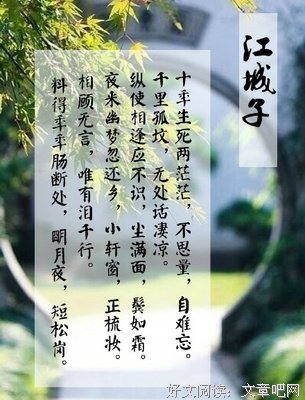 江城子
十年生死两茫茫，不思量，自难忘。
千里孤坟，无处话凄凉。
纵使相逢应不识，尘满面，鬓如霜。
夜来幽梦忽还乡，小轩窗，正梳妆。
相顾无言，唯有泪千行。
料得年年肠断处，明月夜，短松岗。
好文阅读：文章吧网